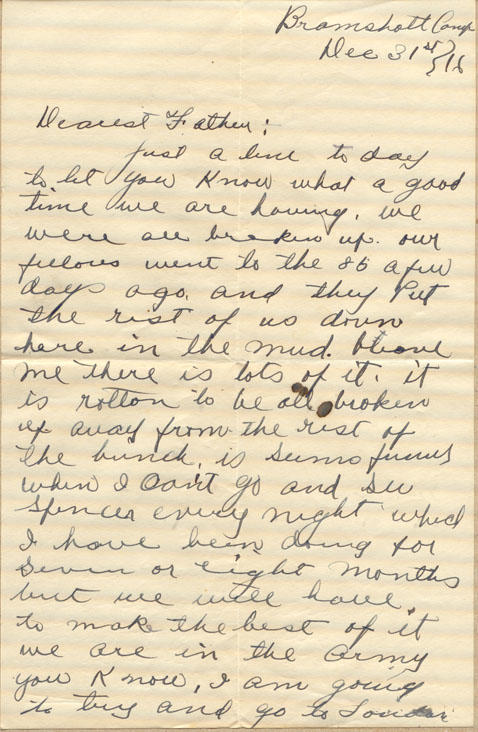 Bramshott Camp
Dec 31st/16
Dearest Father:
just a line to day
to let you Know what a good
time we are having. we
were all broken up. our
fellows went to the 85 a few
days ago. and they Put
the rist of us down
here in the mud. Beleave
me there is lots of it. it
is rotton to be all broken
up away from the rist of
the bunch. is seems funny
when I Can't go and see
Spencer every night which
I have been doing for
seven or eight months
but we will have
to make the best of it
we are in the army
you Know, I am going
to try and go to London